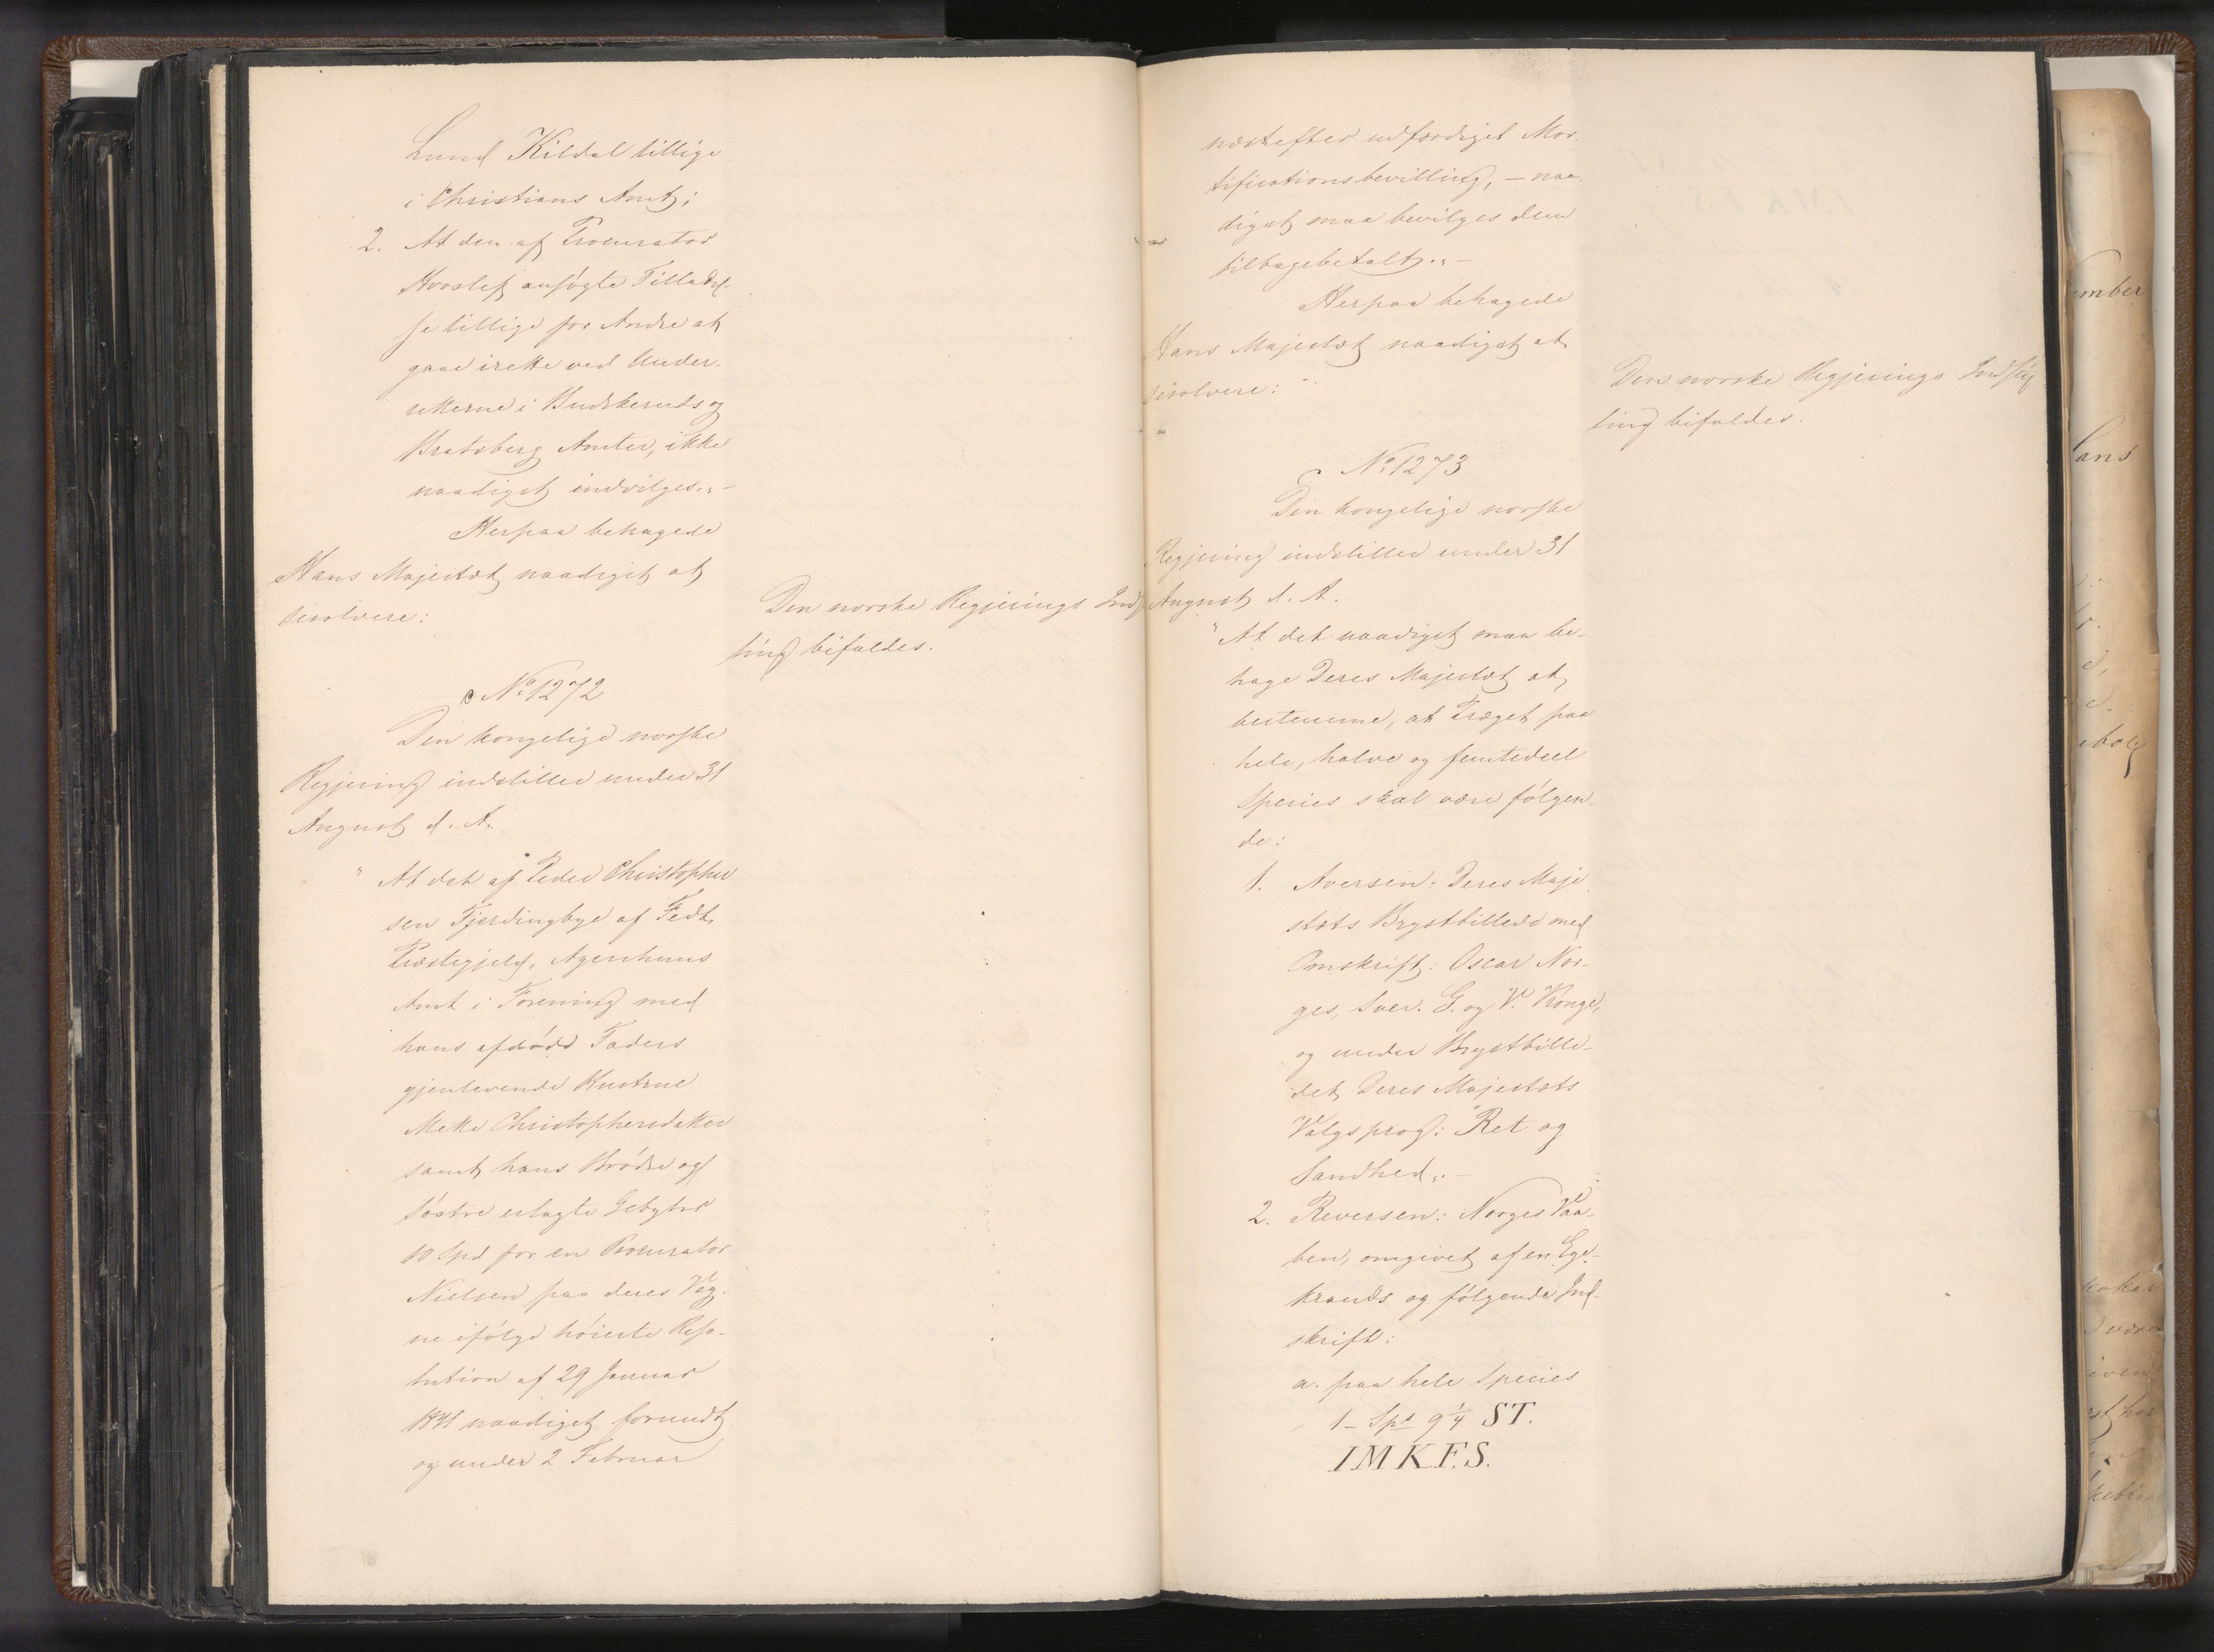 Lund Kildal tillige
i Christians Amt;
2. At den af Procurator
Hvoslef ansøgte Tilladel-
se tillige for Andre at
gaae irette ved Under-
retterne i Buskeruds og
Bratsberg Amter, ikke
naadigst indvilges."-
Herpaa behagede
Hans Majestæt naadigst at
resolvere:
Den norske Regjerings Indstil
ling bifaldes.
No 1272
Den kongelige norske
Regjering indstiller under 31
August d. A.
" At det af Peder Christopher
sen Fjerdingbye af Fedt
Præstegjeld, Agershuus
Amt i Forening med
hans afdøde Faders
gjenlevende Hustrue
Mette Christophersdatter
samt hans Brødre og
Søstre erlagte Gebyhr
10 Spd for en Procurator
Nielsen paa deres Veg-
ne ifølge høieste Reso-
lution af 29 Januar
1841 naadigst forundt
og under 2 Februar
næstefter udfærdiget Mor-
tificationsbevilling, – naa-
digst maa bevilges dem
tilbagebetalt."-
Herpaa behagede
Hans Majestæt naadigst at
resolvere:
Den norske Regjerings Indstil
ling bifaldes.
No 1273
Den kongelige norske
Regjering indstiller under 31
August d. A.
" At det naadigst maa be-
hage Deres Majestæt at
bestemme, at Præget paa
hele, halve og femtedeel
Species skal være følgen-
de:
1. Aversen: Deres Maje
stæts Brystbillede med
Omskrift: Oscar Nor-
ges, Sver. G. og V. Konge,
og under Brystbille-
det Deres Majestæts
Valgsprog: "Ret og
Sandhed".-
2. Reversen: Norges Vaa-
ben, omgivet af en Ege-
krands og følgende Ind-
skrift:
a. paa hele Species
1- Spd 9 1/4 ST.
I M K.F.S.